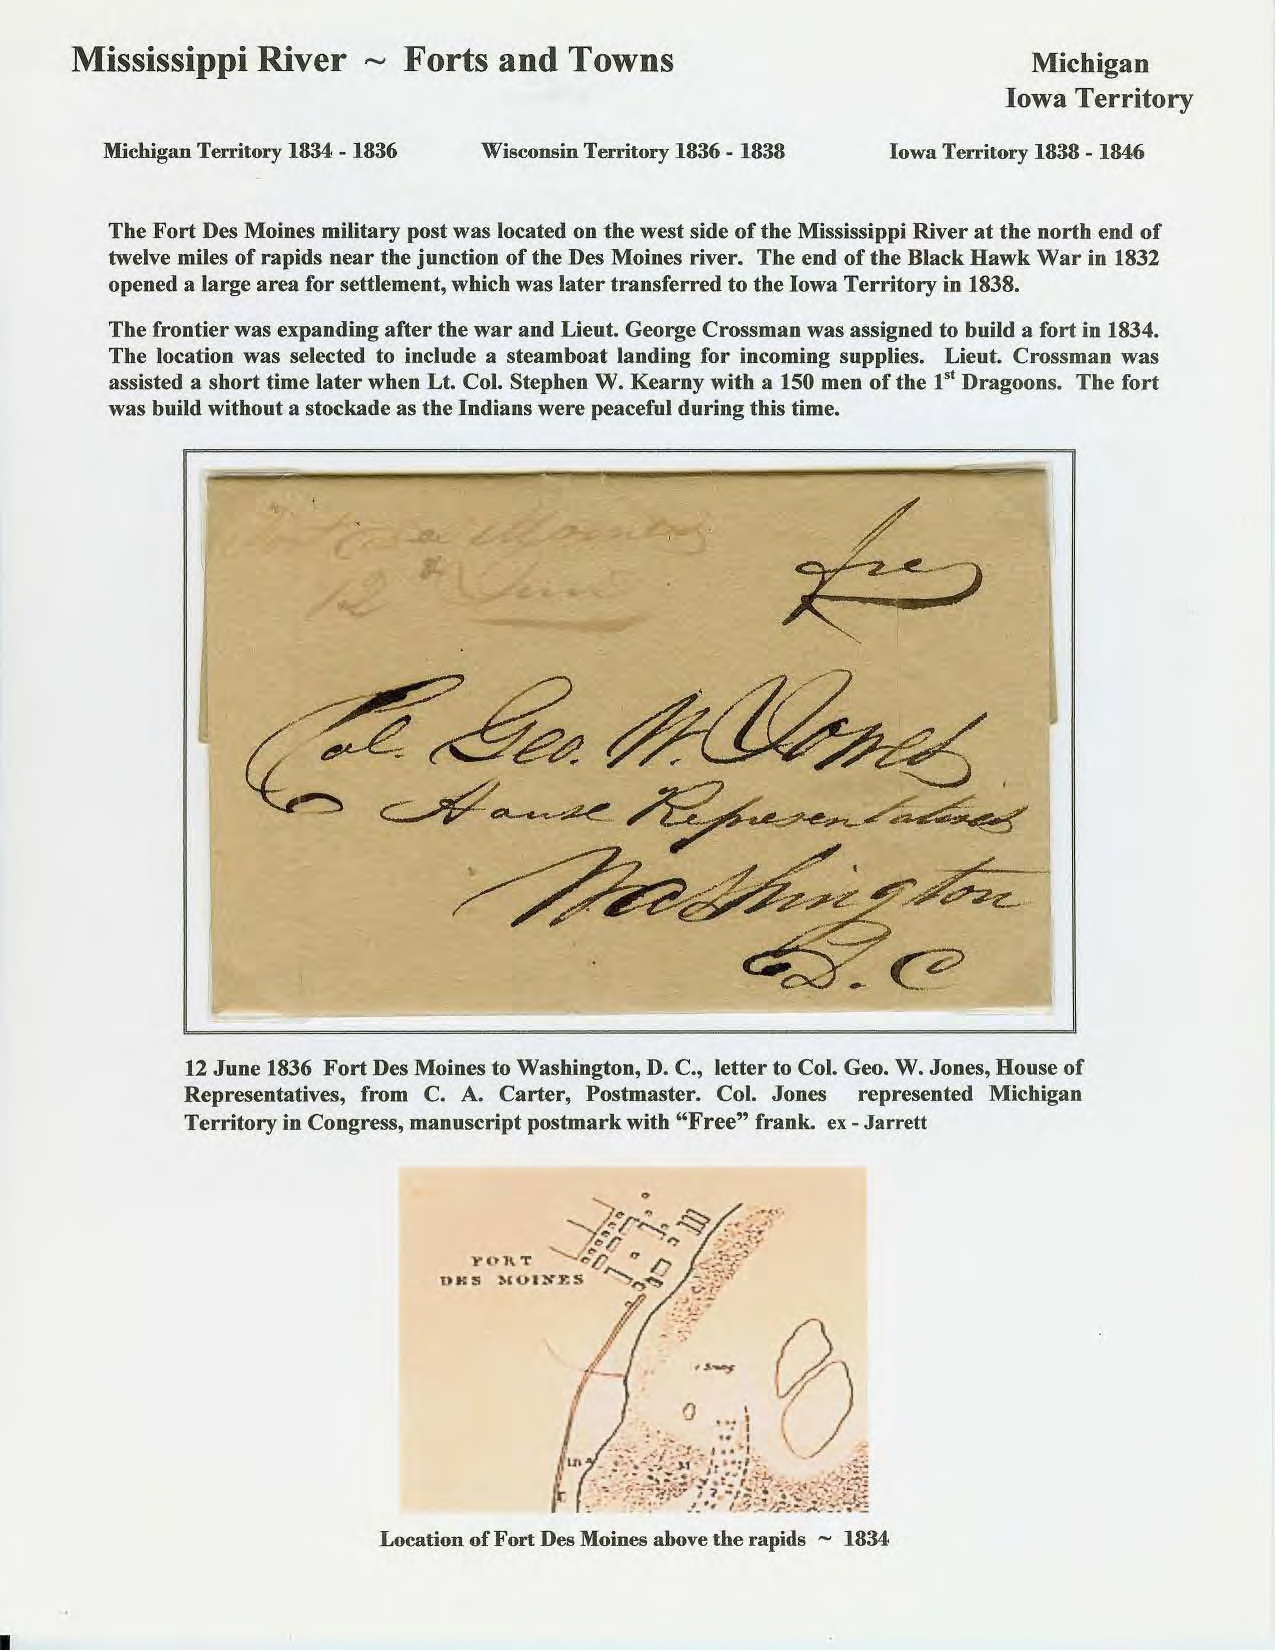 Mississippi River ~ Forts and Towns
Michigan
Iowa Territory
Michigan Territory 1834 - 1836 Wisconsin Territory 1836 - 1838 Iowa Territory 1838 - 1846
The Fort Des Moines military post was located on the west side of the Mississippi River at the north end of
twelve miles of rapids near the junction of the Des Moines river. The end of the Black Hawk War in 1832
opened a large area for settlement, which was later transferred to the Iowa Territory in 1838.
The frontier was expanding after the war and Lieut. George Crossman was assigned to build a fort in 1834.
The location was selected to include a steamboat landing for incoming supplies. Lieut. Crossman was
assisted a short time later when Lt. Col. Stephen W. Kearny with a 150 men of the 1st Dragoons. The fort
was build without a stockade as the Indians were peaceful during this time.
12th June
Free
Col. Geo. W. Jones
House Representatives
Washington
D. C
12 June 1836 Fort Des Moines to Washington, D. C., letter to Col. Geo. W. Jones, House of
Representatives, from C. A. Carter, Postmaster. Col. Jones represented Michigan
Territory in Congress, manuscript postmark with “Free” frank. ex - Jarrett
FORT
DES MOINES
Location of Fort Des Moines above the rapids ~ 1834